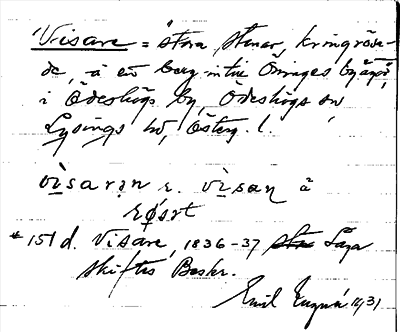 "Visare" = "stora stenar, kringrösa-
de, å en berg intill Öninges byägor,
i Ödeshögs by, Ödeshögs sn,
Lysings hd, Österg. l.
vi̱sarən r. vi̱san å
rø̨̄sət
* 151 d. Visare, 1836-37 Laga
skiftes Beskr.
Emil 1931